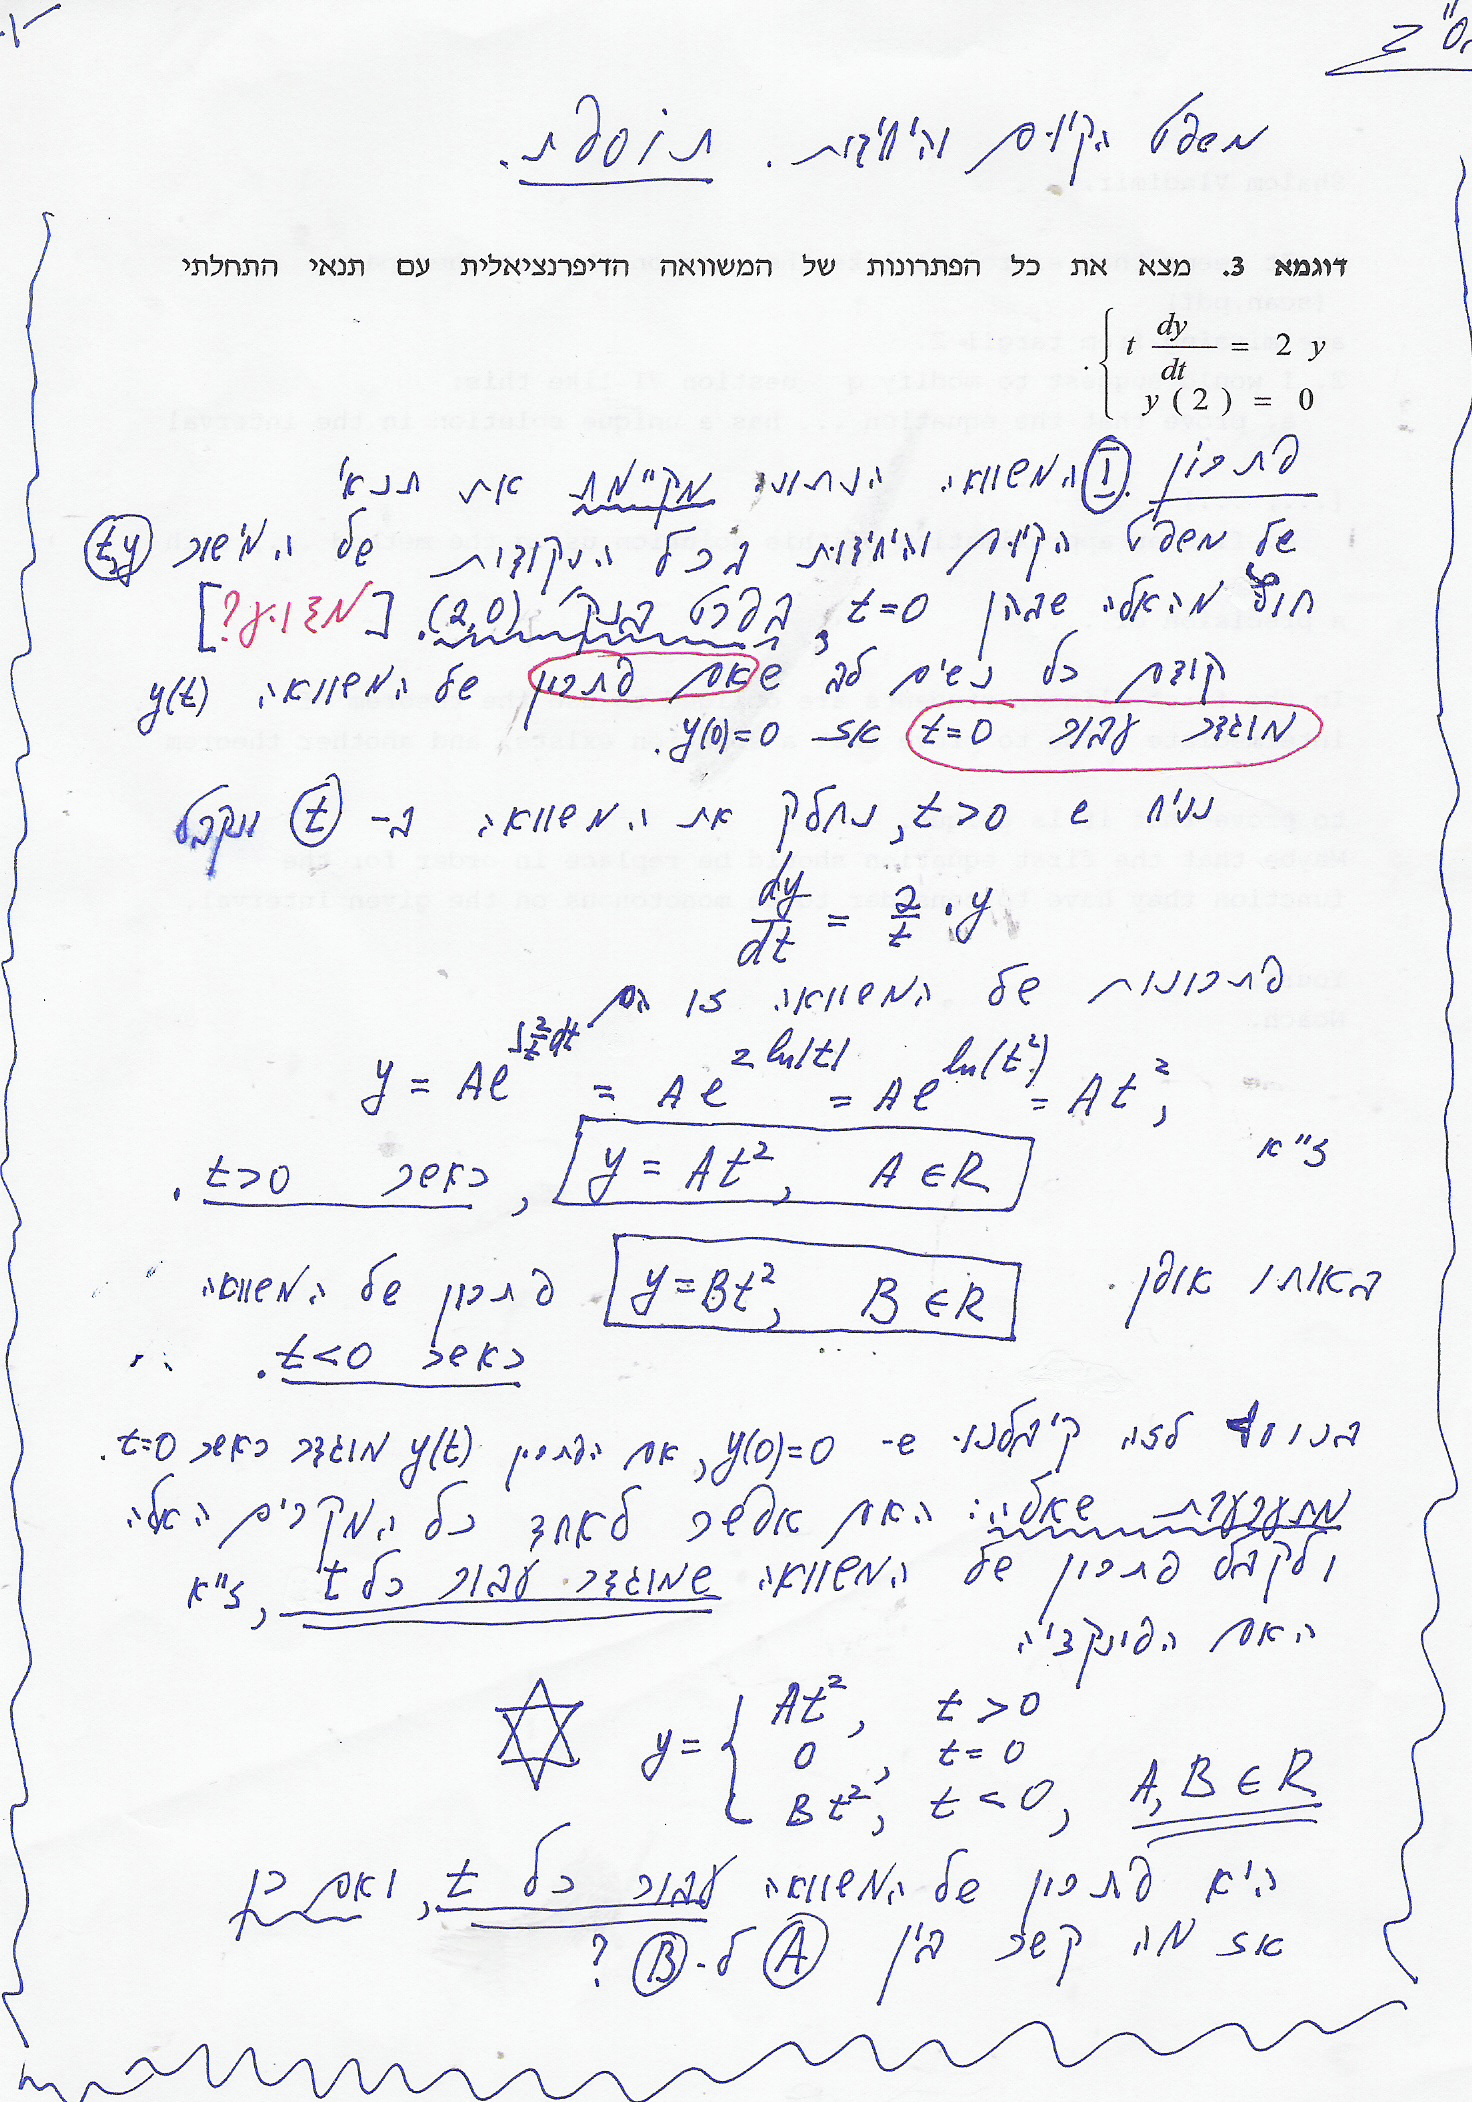 בס"ד
משפט הקיום והיחידות. תוספת.
דוגמא 3. מצא את כל הפתרונות של המשוואה הדיפרנציאלית עם תנאי התחלתי
{ t dy/dt = 2 y
y ( 2 ) = 0 .
פתרון I. המשוואה הנתונה מקיימת את תנאי
של משפט הקיום והיחידות בכל הנקודות של המישור ty
חוץ מהאלה שבהן t=0, בפרט בנק' (2,0). [מדוע?]
קודם כל נשים לב שאם פתרון של המשוואה y(t)
מוגדר עבור t=0 אז y(0)=0.
נניח ש t>0, נחלק את המשוואה ב- t ונקבל
dy/dt = 2/t · y
פתרונות של המשוואה זו הם
y = Ae^{∫2/t dt} = Ae^{2 ln|t|} = Ae^{ln(t²)} = At²,
ז"א
y = At², A ∈ R, כאשר t>0.
באותו אופן y = Bt², B ∈ R פתרון של המשוואה
כאשר t<0.
בנוסף לזה קיבלנו ש- y(0)=0, אם הפתרון y(t) מוגדר כאשר t=0.
מתעוררת שאלה: האם אפשר לאחד כל המקרים האלה
ולקבל פתרון של המשוואה שמוגדר עבור כל t, ז"א
האם הפונקציה
y = { At², t > 0
0, t = 0
Bt², t < 0, A, B ∈ R
היא פתרון של המשוואה עבור כל t, ואם כן
אז מה קשר בין A ל- B ?